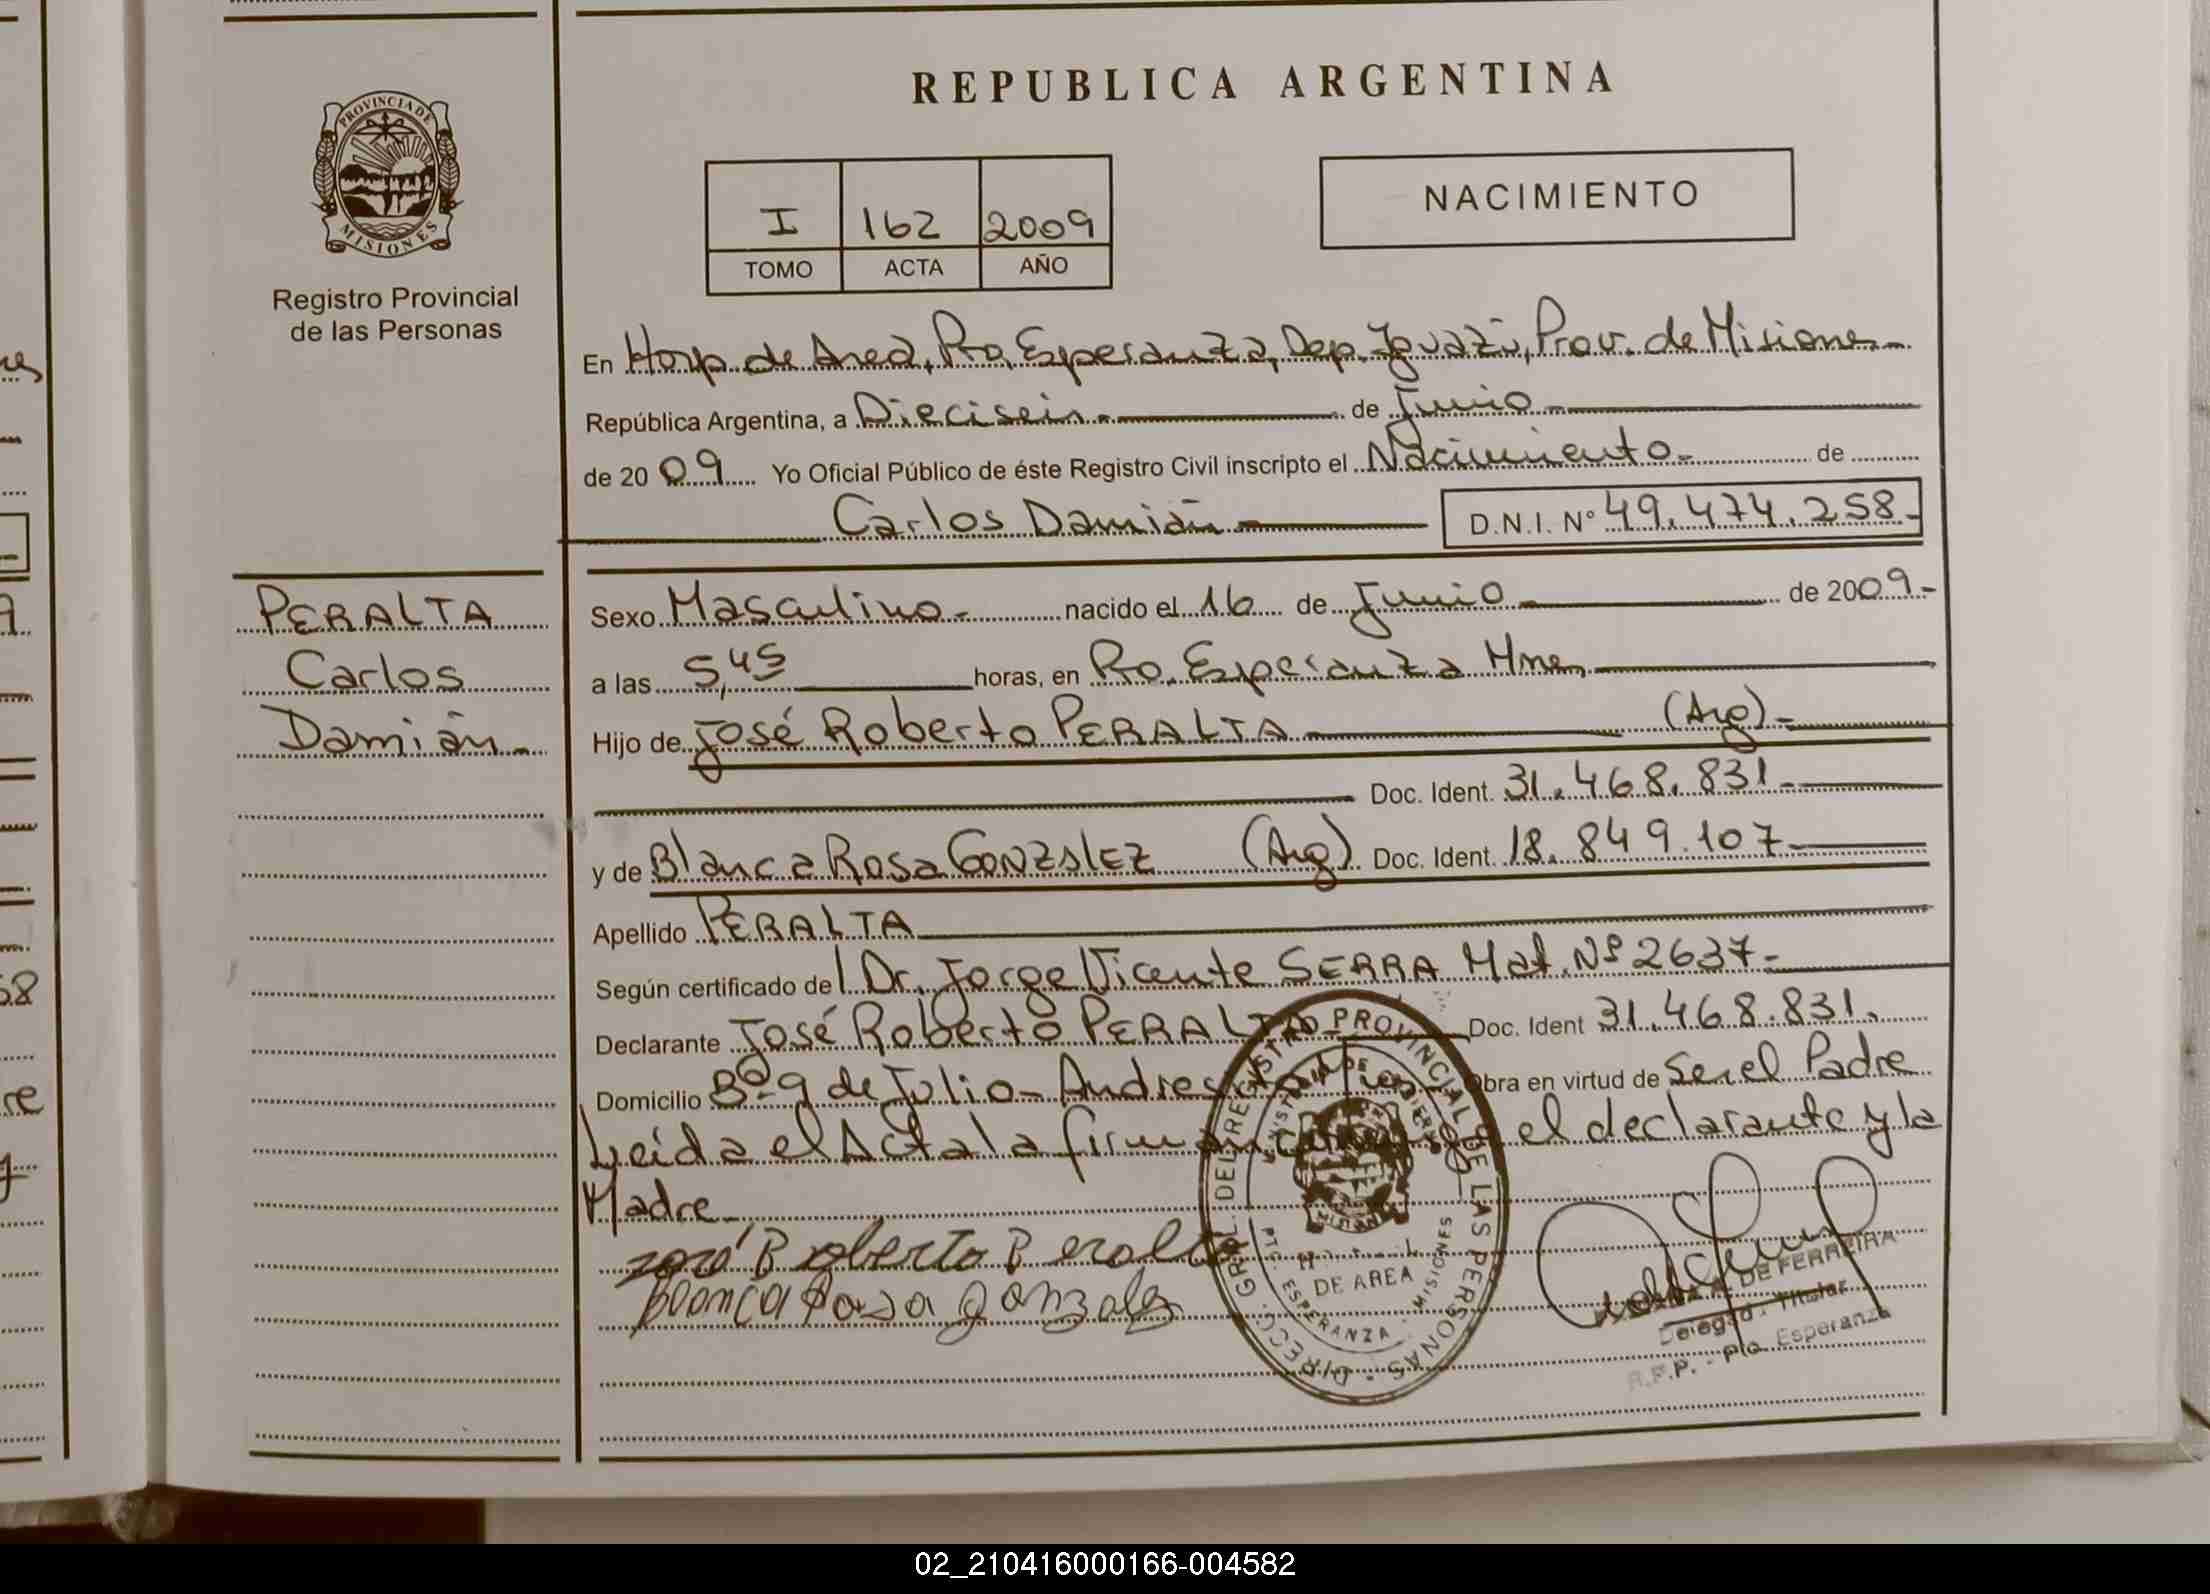 REPUBLICA ARGENTINA
PROVINCIA DE
MISIONES
Registro Provincial
de las Personas
I 162 2009
TOMO ACTA AÑO
NACIMIENTO
En Hosp. de Area, Pto. Esperanza, Dep. Iguazú, Prov. de Misiones.-
República Argentina, a Dieciseis.- de Junio.-
de 2009 Yo Oficial Público de éste Registro Civil inscripto el Nacimiento.- de
Carlos Damián.- D.N.I. Nº 49.474.258.-
PERALTA
Carlos
Damián.-
Sexo Masculino.- nacido el 16 de Junio.- de 2009.-
a las 5,45 horas, en Pto. Esperanza Mnes.-
Hijo de José Roberto PERALTA.- (Arg).-
Doc. Ident. 31.468.831.-
y de Blanca Rosa GONZALEZ (Arg). Doc. Ident. 18.849.107.-
Apellido PERALTA.
Según certificado del Dr. Jorge Vicente SERRA Mat. Nº 2637.-
Declarante José Roberto PERALTA Doc. Ident 31.468.831.
Domicilio Bº 9 de Julio - Obra en virtud de ser el Padre
Leída el Acta la firman el declarante y la
Madre.-
José Roberto Peralta
Blanca Rosa Gonzalez
DIRECC. GRAL. DEL REGISTRO PROVINCIAL DE LAS PERSONAS
DE AREA
ESPERANZA - MISIONES
DE FERREIRA
Delegad. Titular
R.P.P. - Pto. Esperanza
02_210416000166-004582